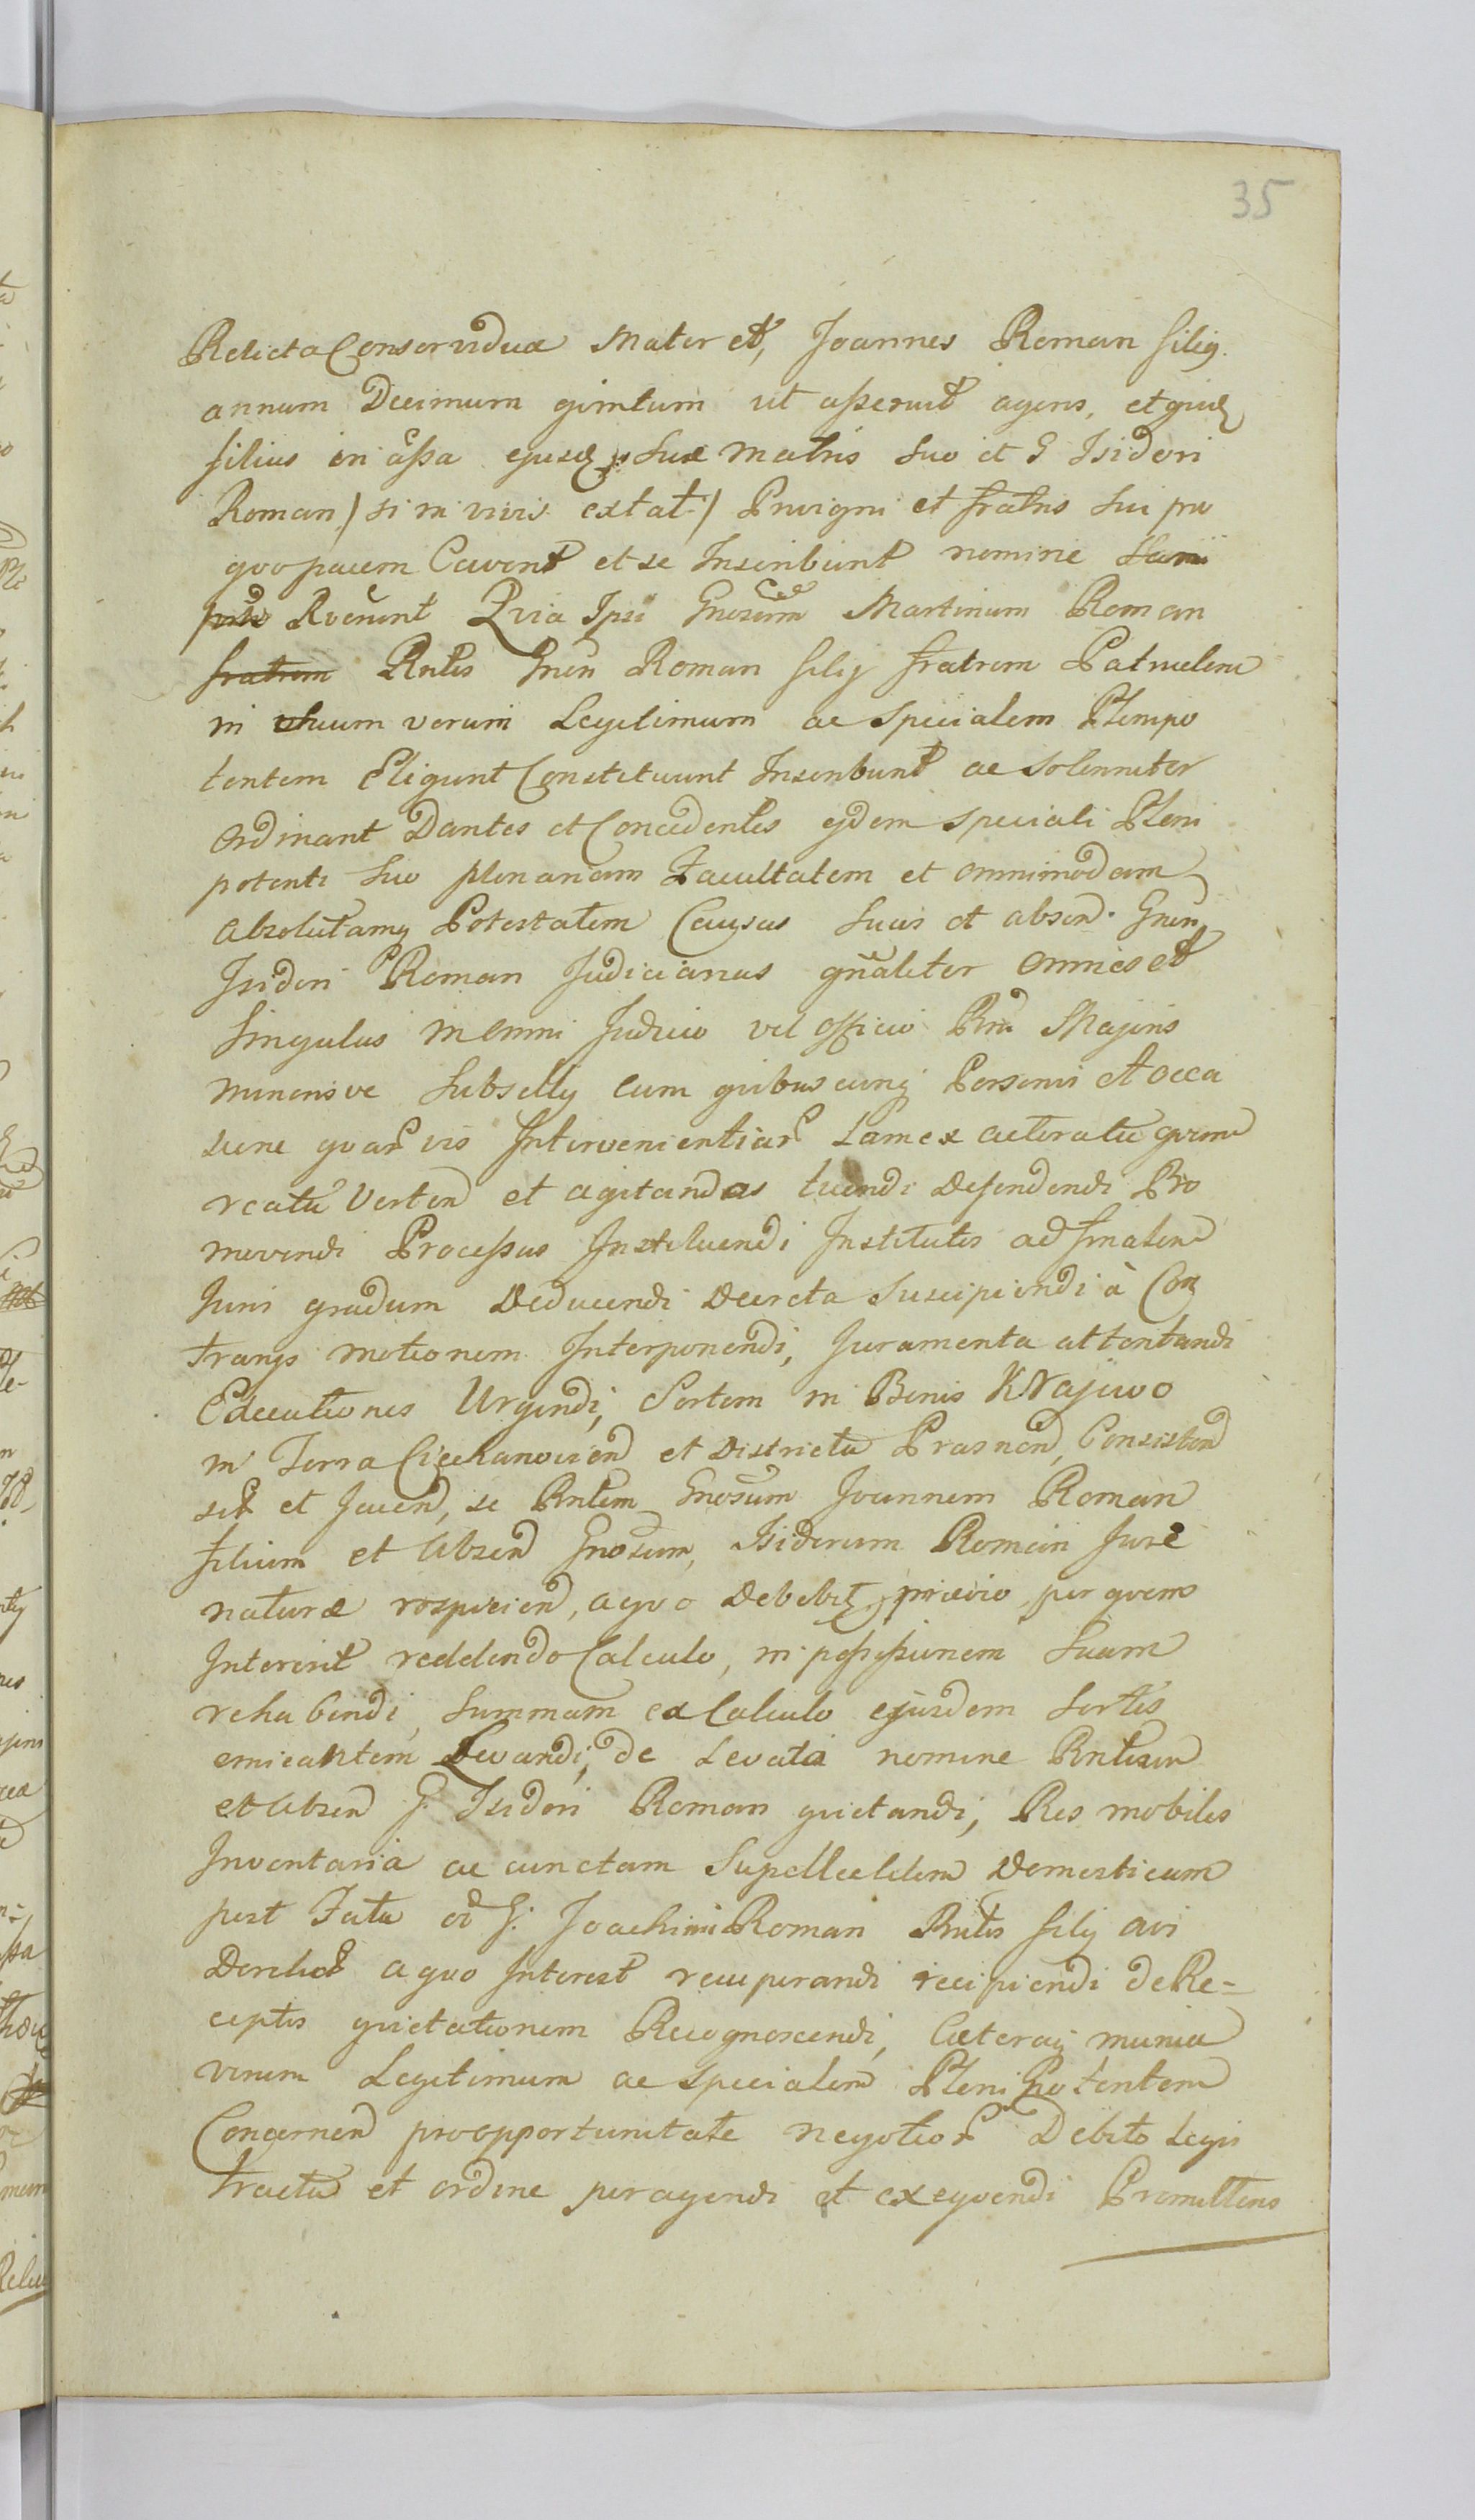 35
Relicta Consorvidua Mater et, Joannes Roman filiq.
annum Decimum qvintum ut asseruit agens, et qvid
filius in assa ejusd suæ Matris suo et G Isidori
Roman /: si in vivis extat :/ Privigni et fratris sui pro
qvo pacem Cavent et se Inscribunt nomine
Rverunt Qvia Ipsi Gnosum Martinum Roman
fratrem Rntis Gnen Roman filij fratrem Patruelem
in suum verum Legitimum ac specialem Plenipo
tentem Eligunt Constituunt Inscribunt ac solenniter
ordinant Dantes et Concedentes ejdem speciali Pleni
potenti suo plenariam Facultatem et omnimodam
absolutamq Potestatem Causas suas et absen. Gnen
Isidori Roman Judiciarias gnaliter omnes et
singulas in omni Judicio vel officio Rni Majoris
minorisve subsellij cum qvibuscunq Personis et occa
sione qvarvis Intervenientiar tam ex acteratu qvam
reatu Verten et agitandas tuendi Defendendi Pro
movendi Processus Instituendi Institutos ad finalem
Juris gradum Deducendi Decreta Suscipiendi à Con
trarijs motionem Interponendi, Juramenta attentandi
Executiones Urgendi, Sortem in Bonis KRajewo
in Terra Ciechanovien et Districtu Prasnen, Consisten
sit et Jacen, se Rntem Gnosum Joannem Roman
filium et Absen Gnosum, Isidorum Roman Jure
naturæ respicien, a qvo Debebit, prævio, per qvem
Intererit reddendo Calculo, in possessionem Suam
rehabendi, Summam ex Calculo ejusdem Sortis
emicantem Levandi, de Levata nomine Rntium
et Absen G. Isidori Roman qvietandi, Res mobiles
Inventaria ac cunctam Supellectilem Domesticam
post Fata oi G. Joachimi Roman Rntis filij avi
Derelict a qvo Interest recuperandi recipiendi de Re=
ceptis qvietationem Recognoscendi, Cæteraq munia
verum Legitimum ac specialem Plenipotentem
Concernen pro opportunitate negotior Debito Legis
tractu et ordine peragendi et exeqvendi Promittens